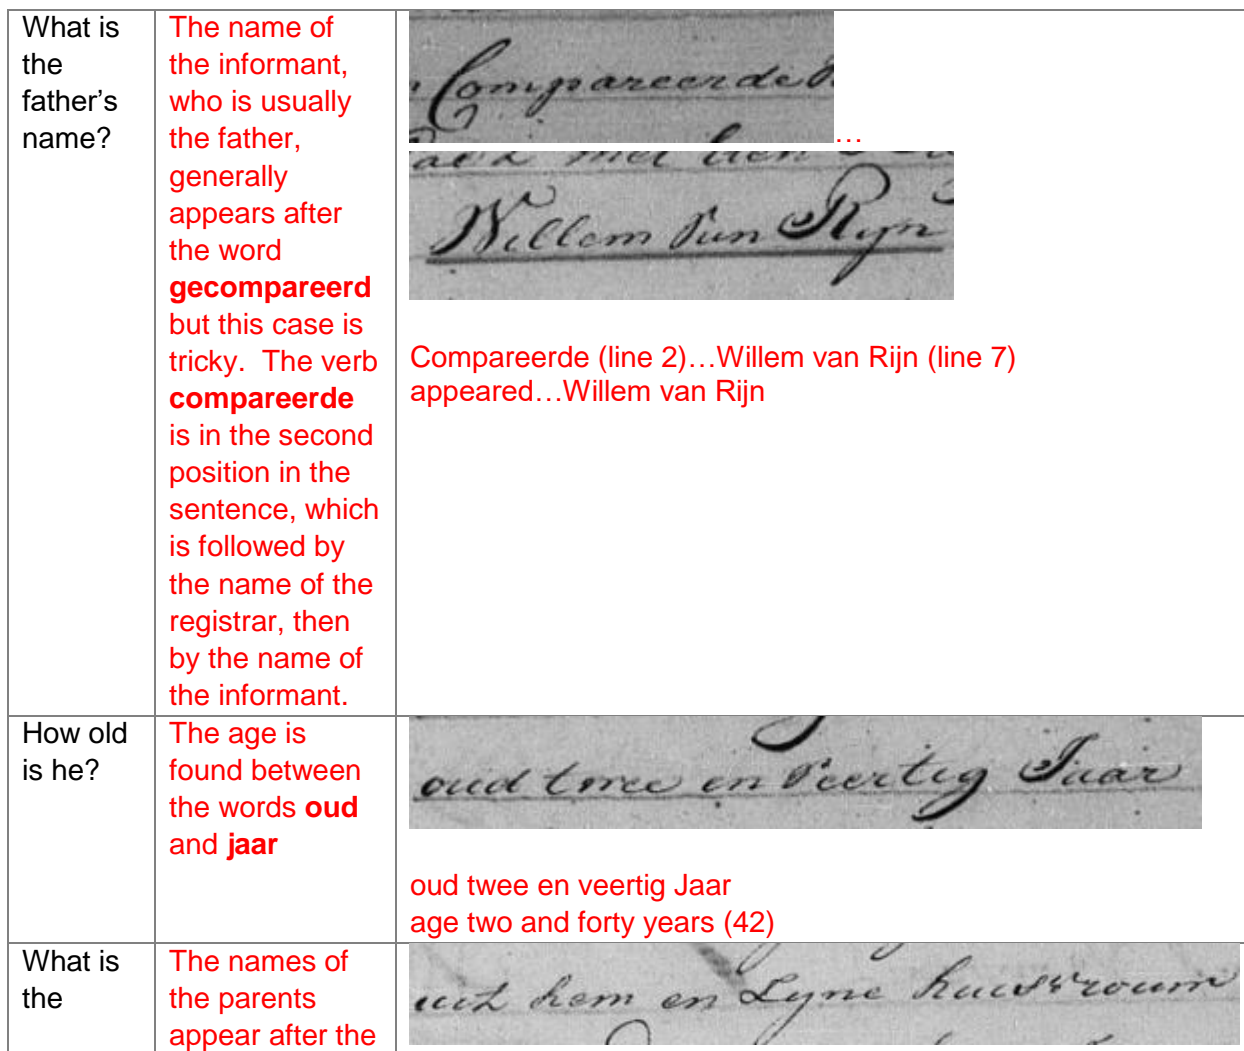 What is
the
father's
name?
The name of
the informant,
who is usually
the father,
generally
appears after
the word
gecompareerd
but this case is
tricky.  The verb
compareerde
is in the second
position in the
sentence, which
is followed by
the name of the
registrar, then
by the name of
the informant.
Compareerde
…
met een
Willem van Rijn
Compareerde (line 2)…Willem van Rijn (line 7)
appeared…Willem van Rijn
How old
is he?
The age is
found between
the words oud
and jaar
oud twee en veertig Jaar
oud twee en veertig Jaar
age two and forty years (42)
What is
the
The names of
the parents
appear after the
uit hem en Zyne huisvrouw